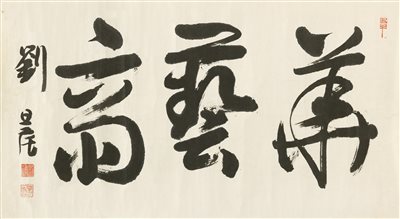 華藝齋
劉旦宅